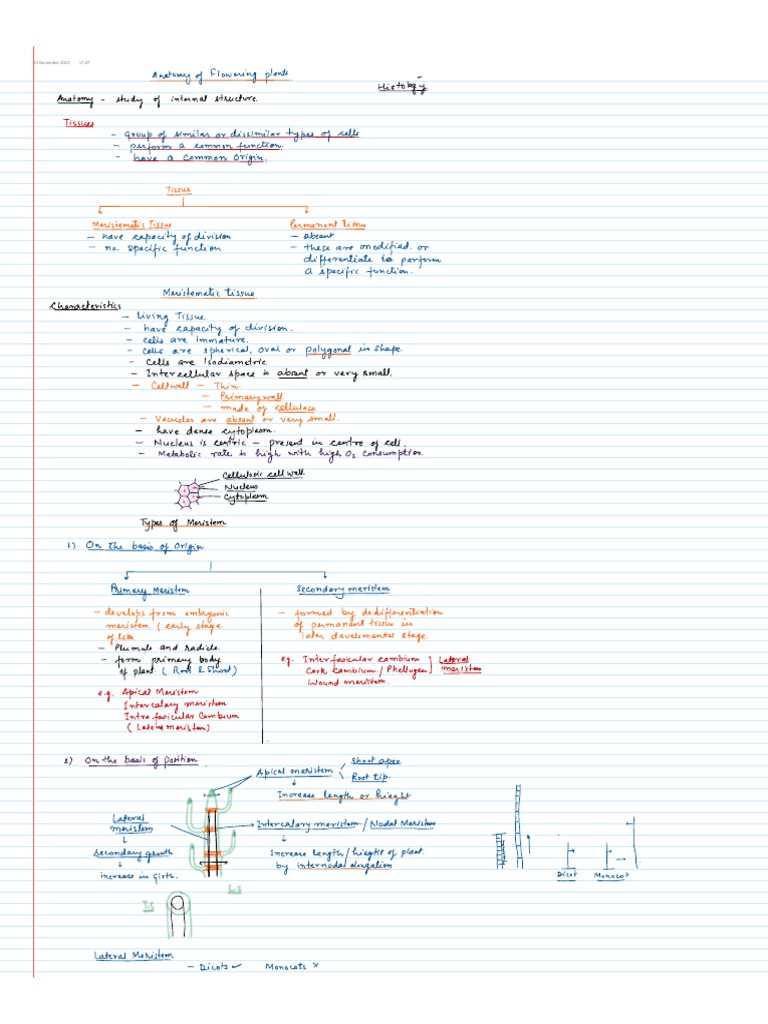 13 November 2021 17:37
Anatomy of Flowering plants
Histology
Anatomy - study of internal structure.
Tissues
- group of similar or dissimilar types of cells
- perform a common function.
- have a common origin.
Tissue
Meristematic Tissue
- have capacity of division
- no. specific function
Permanent tissue
- absent
- these are modified or
differentiate to perform
a specific function.
Meristematic tissue
Characteristics
- Living Tissue.
- have capacity of division.
- cells are immature.
- cells are spherical, oval or polygonal in shape.
- Cells are Isodiametric
- Intercellular space is absent or very small.
- Cellwall - Thin.
- Primary wall
- made of cellulose
- Vacuoles are absent or very small.
- have dense cytoplasm.
- Nucleus is centric - present in centre of cell.
- Metabolic rate is high with high O2 consumption.
Cellulosic cell wall.
Nucleus
Cytoplasm
Types of Meristem
1) On the basis of origin
Primary Meristem
- develops from embryonic
meristem (early stage
of life.
- Plumule and radicle.
- form primary body
of plant. (Root & Shoot)
e.g. Apical Meristem
Intercalary meristem
Intra fasicular Cambium
(Lateral meristem)
Secondary meristem
- formed by dedifferentiation
of permanent tissue in
later develomental stage.
e.g. Interfasicular cambium
Cork cambium / Phellogen
Wound meristem.
Lateral
meristem
2) On the basis of position
Apical meristem
Shoot apex
Root tip.
Increase length or hieght
Lateral
meristem
Secondary growth
increase in girth.
Intercalary meristem / Nodal Meristem
Increase length / hieght of plant.
by internodal elongation
Dicot
Monocot
Lateral Meristem
- Dicots ✓ Monocots ×